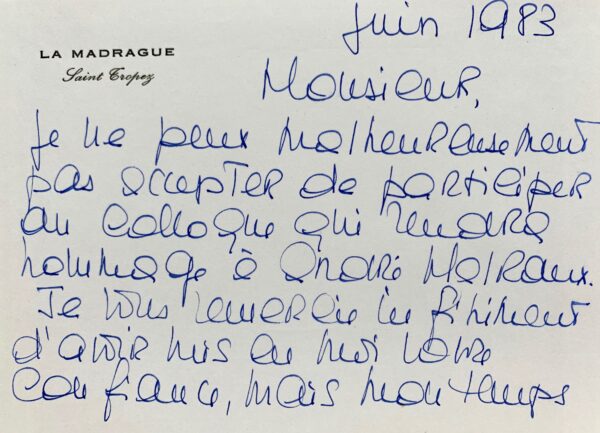 Juin 1983
LA MADRAGUE
Saint Tropez
Monsieur,
Je ne peux malheureusement
pas accepter de participer
au Colloque qui rendra
hommage à André Malraux.
Je vous remercie infiniment
d'avoir mis en moi votre
confiance, mais mon temps